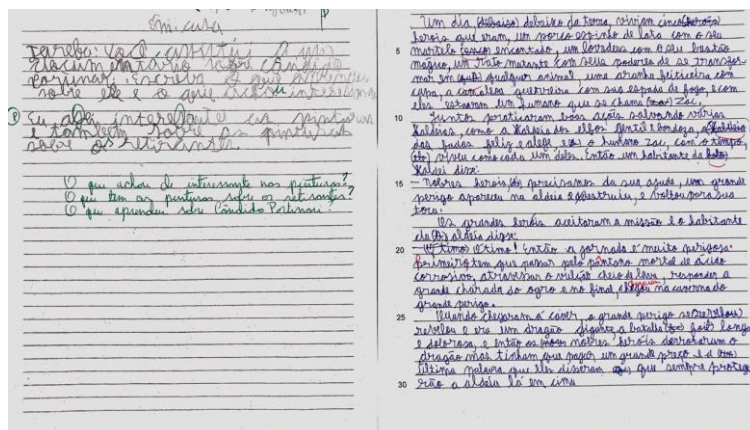 Em casa
Tarefa: Você assistiu a um
documentário sobre Cândido
Portinari. Escreva o que aprendeu
sobre ele e o que achou interessante
Eu achei interessante as pinturas
e também sobre as pinturas
sobre os retirantes.
O que achou de interessante nas pinturas?
O que tem as pinturas sobre os retirantes?
O que aprendeu sobre Cândido Portinari?
Um dia debaixo da terra, viviam cinco
herois que eram, um porco espinho de lata com o seu
5 martelo encantado, um louvadeus com o seu bastão
mágico, um rato mutante com seus poderes de se transfor
mar em qualquer animal, uma aranha feiticeira com
capa, a camaleoa guerreira com sua espada de fogo, e com
eles estavam um humano que se chama Zac.
10 Juntos praticaram boas ações salvando várias
aldeias, como a aldeia dos elfos gentil e bondoza, a aldeia
das fadas feliz e alegre, e o humano Zac, com o tempo,
viveu como cada um deles. Então um habitante da
aldei dize:
15 - Nobres herois precisamos da sua ajuda, um grande
perigo apareceu na aldeia e destruiu, e voltou para sua
toca.
Os grandes herois aceitaram a missão e o habitante
da aldeia disse:
20 - Otimo! Então a jornada é muito perigosa.
primeiro tem que passar pelo pântano mortal de ácido
corrosivo, atravessar o vulcão cheio de lava, responder a
grande charada do ogro e no final, chegou na caverna do
grande perigo.
25 Quando chegaram a caver, o grande perigo se
revelou e era um dragão gigante, a batalha foi longa
e dolorosa, e então os nobres herois derrotaram o
dragão mas tinham que pagar um grande preço e a
última palavra que eles disseram que sempre proteg
30 rão a aldeia lá em cima